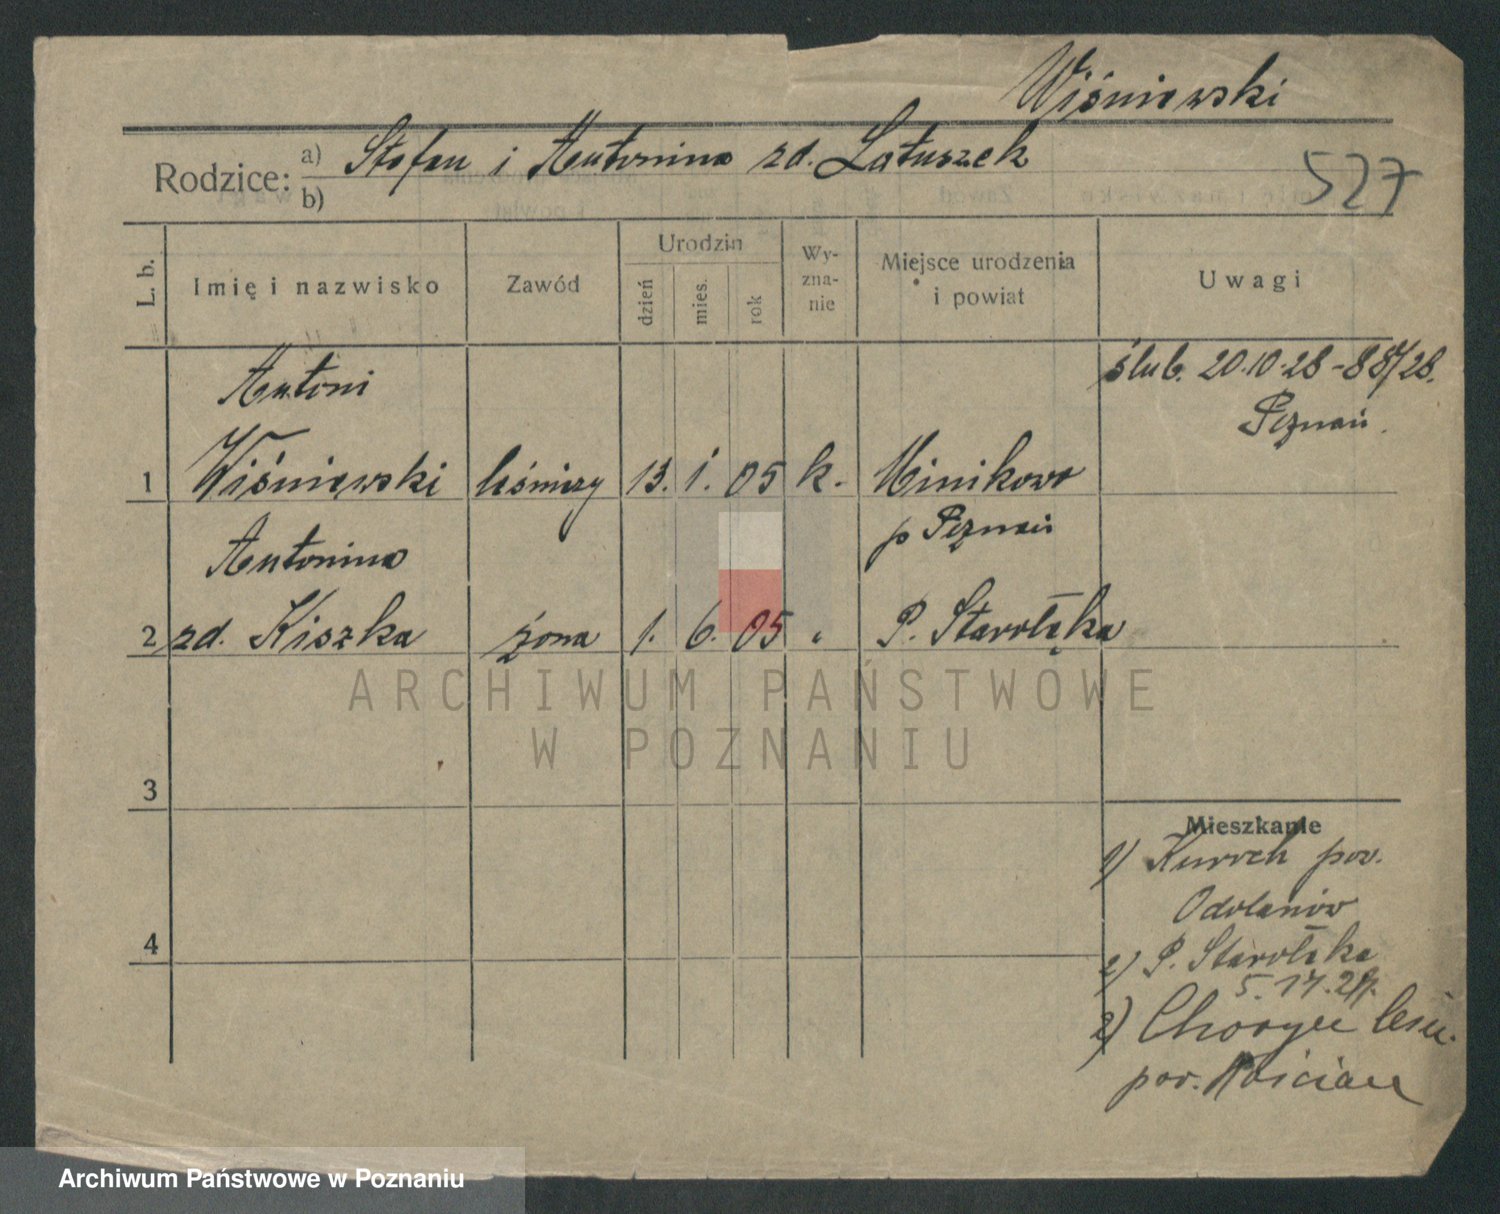 Wiśniewski
Rodzice: a) Stefan i Antonina zd. Latuszek
b)
527
L. b.
Imię i nazwisko
Zawód
Urodzin
dzień
mies.
rok
Wy-
zna-
nie
Miejsce urodzenia
i powiat
Uwagi
Antoni
ślub. 20.10.28 - 887/28.
Poznań.
1 Wiśniewski leśniczy 13. 1. 05 k. Minikowo
p Poznań
Antonina
2 zd. Kiszka żona 1. 6. 05 " P. Starołęka
ARCHIWUM PAŃSTWOWE
W POZNANIU
3
Mieszkanie
1) pow.
Odolanów
4
2) P. Starołęka
5. 17. 29.
2) Choryń leśn.
pow. Kościan
Archiwum Państwowe w Poznaniu